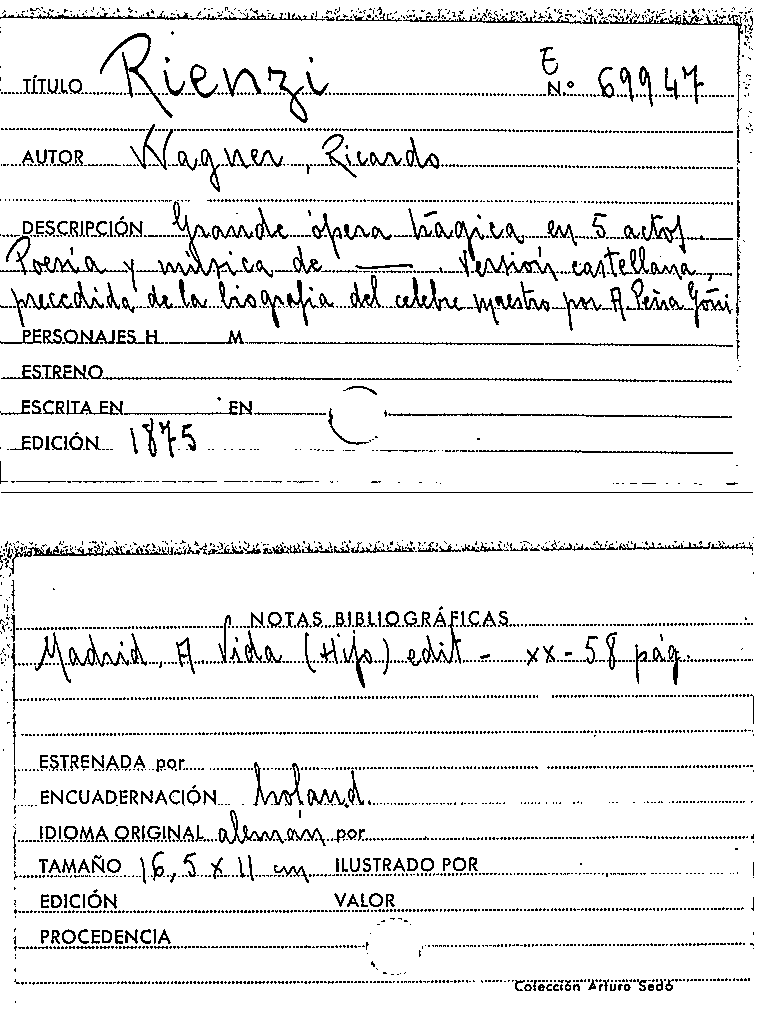 TÍTULO Rienzi E N.º 69947
AUTOR Wagner, Ricardo
DESCRIPCIÓN Grande ópera trágica en 5 actos.
Poesía y música de —— . Versión castellana,
precedida de la biografia del celebre maestro por A. Peña Goñi
PERSONAJES H M
ESTRENO
ESCRITA EN EN
EDICIÓN 1875
NOTAS BIBLIOGRÁFICAS
Madrid, A Vida (Hijo) edit - xx - 58 pág.
ESTRENADA por
ENCUADERNACIÓN holand.
IDIOMA ORIGINAL alemán por
TAMAÑO 16,5 x 11 cm ILUSTRADO POR
EDICIÓN VALOR
PROCEDENCIA
Colección Arturo Sedó